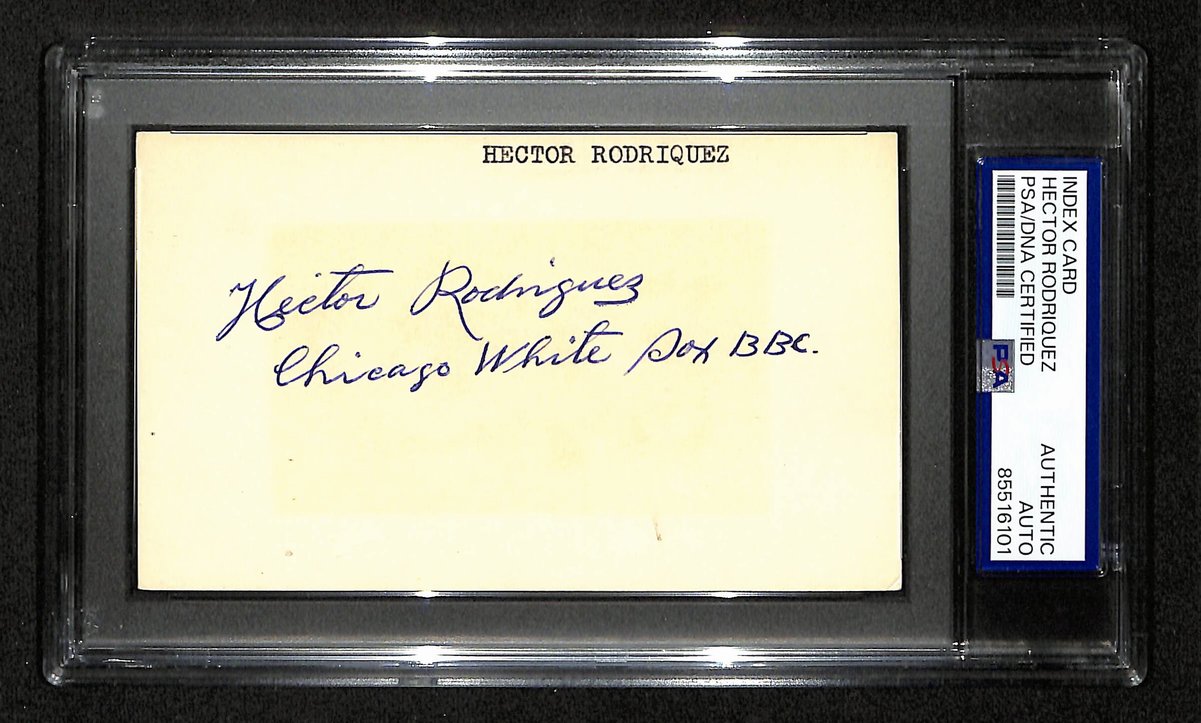 HECTOR RODRIQUEZ
Hector Rodriguez
Chicago White Sox BBC.
INDEX CARD
HECTOR RODRIQUEZ
PSA/DNA CERTIFIED
PSA
AUTHENTIC
AUTO
85516101